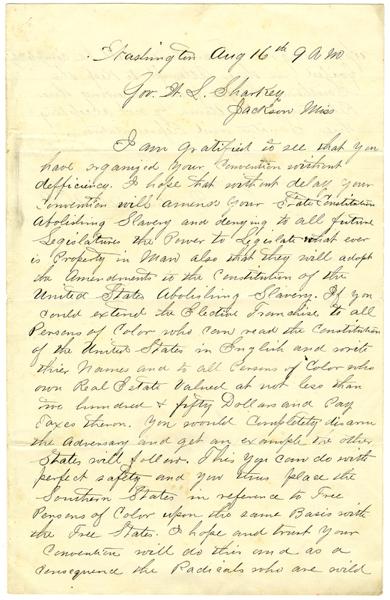 Washington Aug 16th 9 A.M.
Gov. W. L. Sharkey
Jackson Miss
I am gratified to see that you
have organized your Convention without
defficiency. I hope that without delay your
Convention will amend your State Constitution
Abolishing Slavery and denying to all future
Legislatures the Power to Legislate what ever
is Property in Man also that they will adopt
the Amendments to the Constitution of the
United States Abolishing Slavery. If you
could extend the Elective Franchise to all
Persons of Color who can read the Constitution
of the United States in English and write
thier Names and to all Persons of Color who
own Real Estate Valued at not less than
two hundred & fifty Dollars and Pay
Taxes theron. You would completely disarm
the Adversary and get an example the other
States will follow. This you can do with
perfect safety and you thus place the
Southern States in reference to Free
Persons of Color upon the same Basis with
the Free States. I hope and trust your
Convention will do this and as a
Consequence the Radicals who are wild